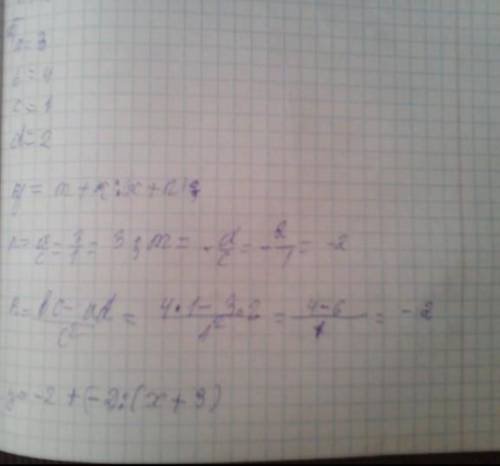 a=3
b=4
c=1
d=2
y = m+k:(x+n);
n = a/c = 3/1 = 3; m = -d/c = -2/1 = -2
k = bc-ad/c² = 4·1-3·2/1² = 4-6/1 = -2
y = -2+(-2):(x+3)